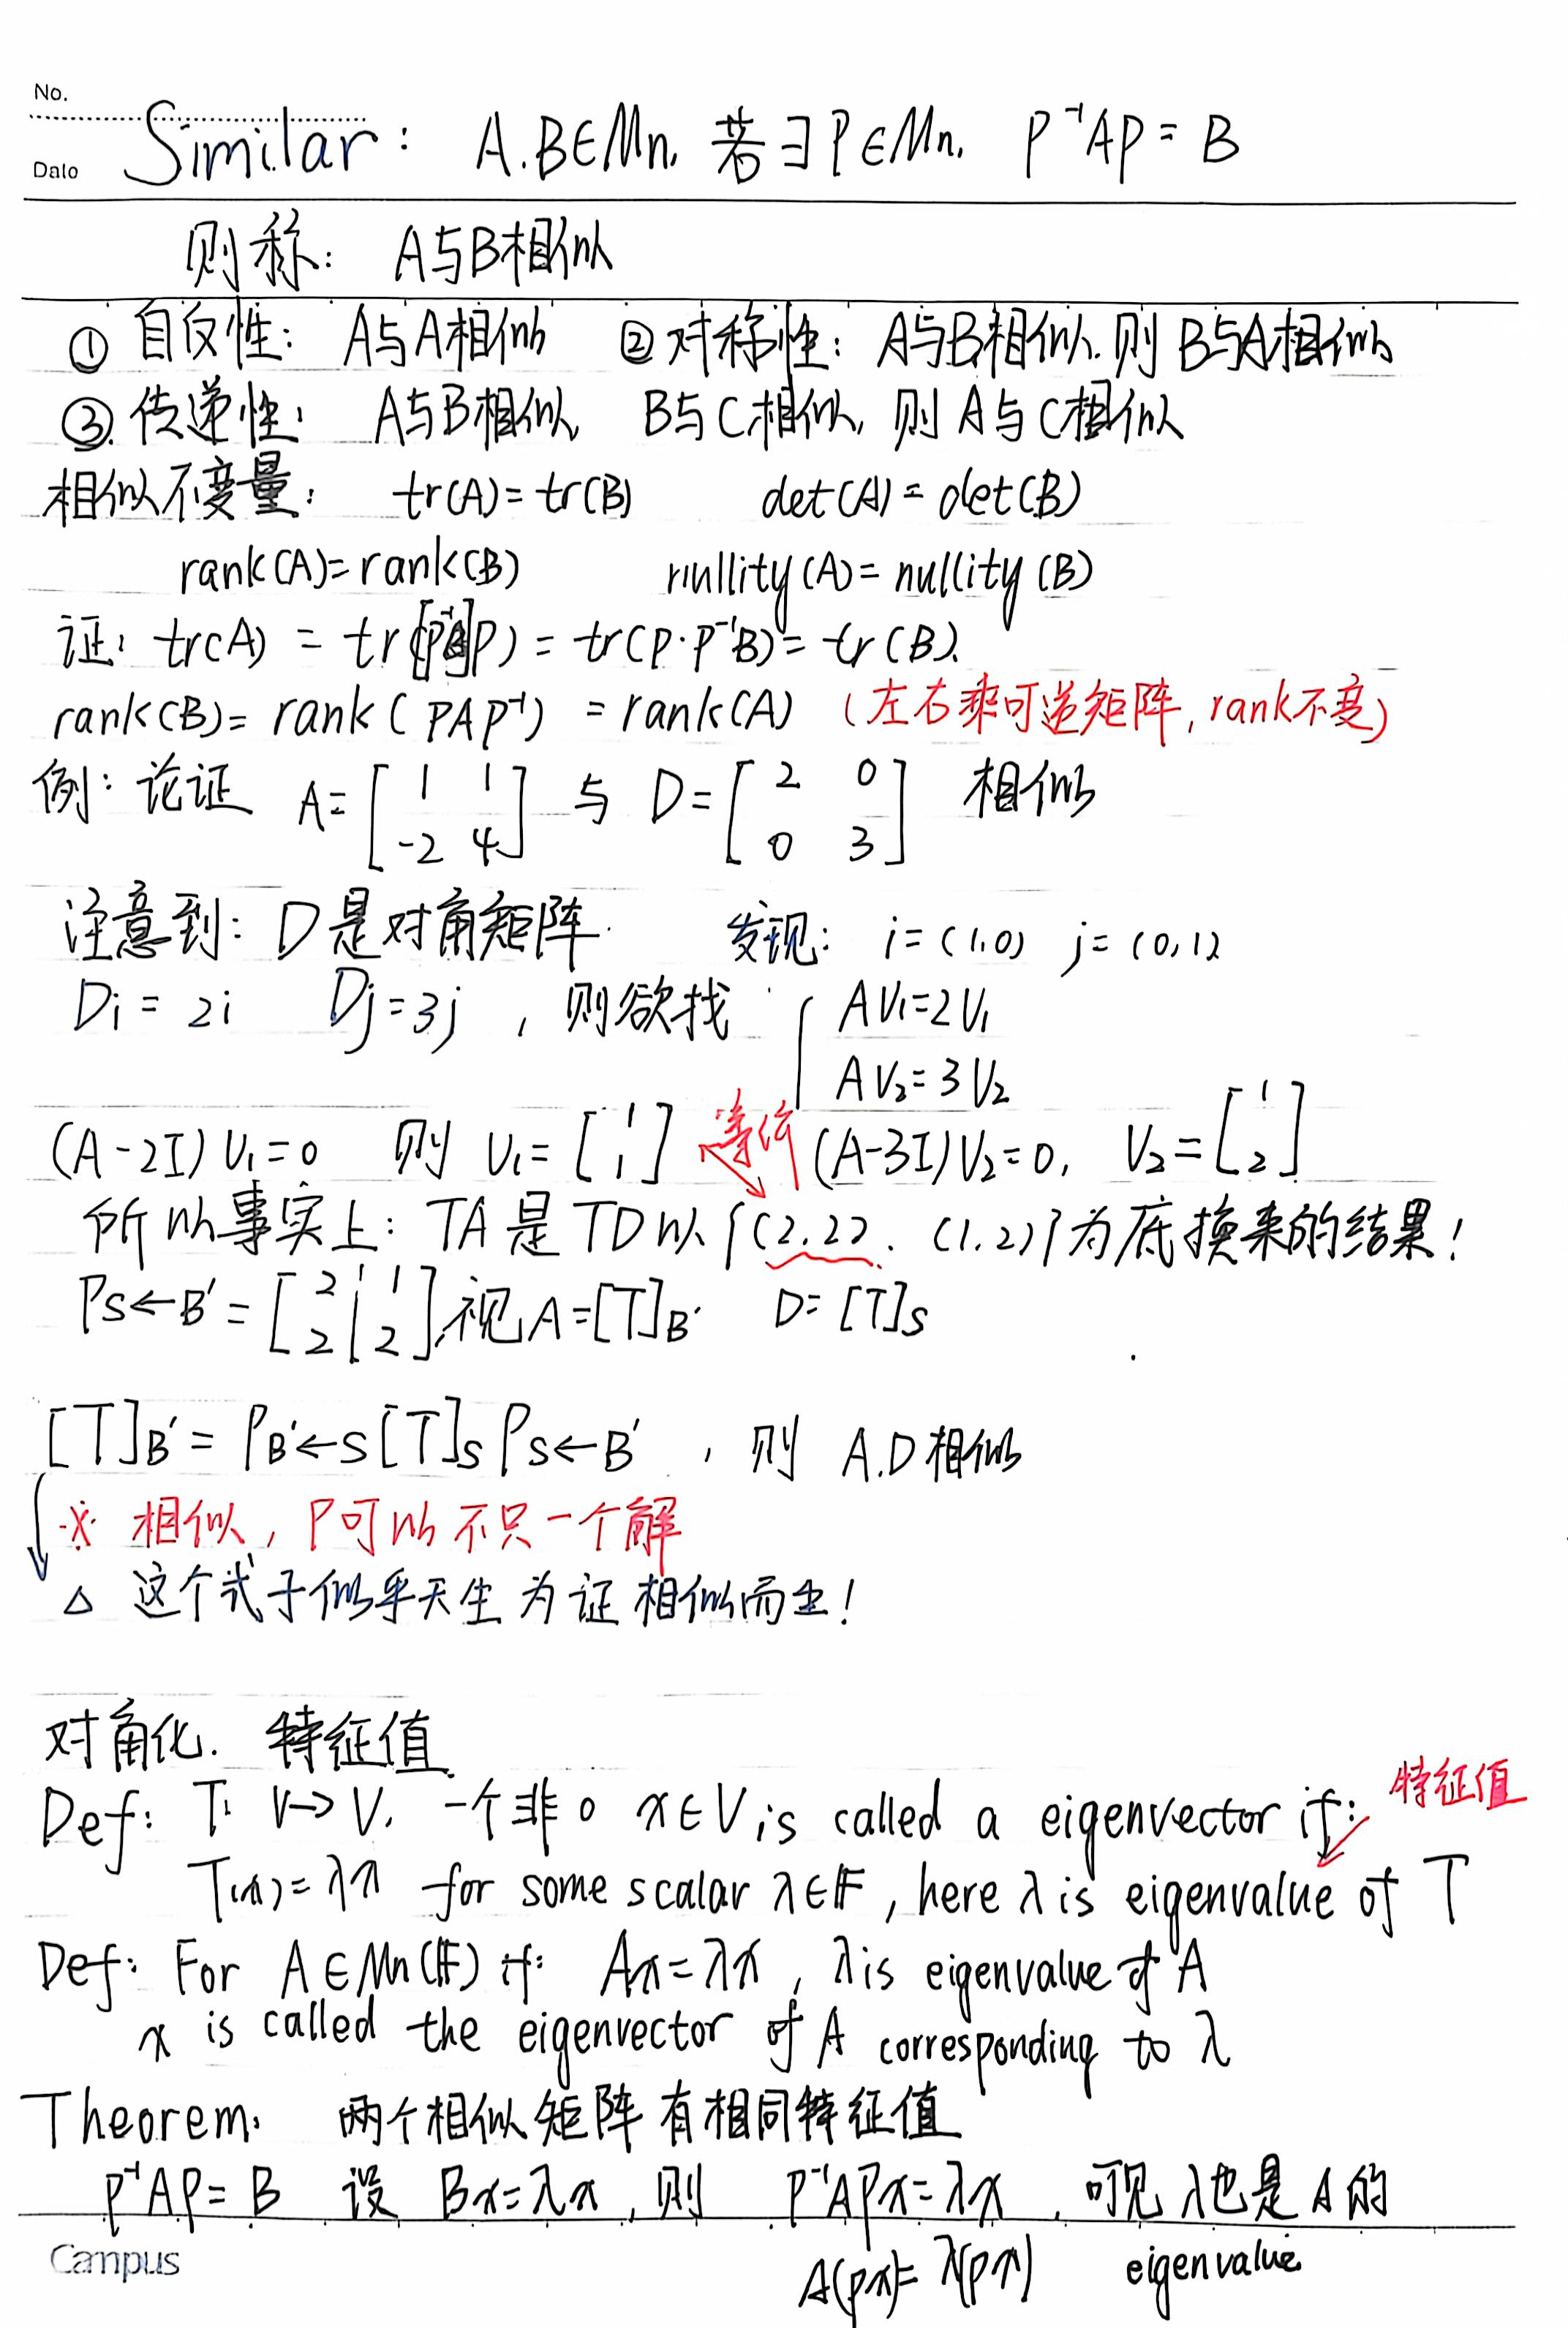 No.
Date
Similar: A.B∈Mn, 若∃P∈Mn, P⁻¹AP = B
则称: A与B相似
① 自反性: A与A相似 ② 对称性: A与B相似. 则 B与A相似
③ 传递性: A与B相似, B与C相似, 则 A与C相似
相似不变量: tr(A)= tr(B) det(A) = det(B)
rank(A)= rank(B) nullity(A)= nullity(B)
证: tr(A) = tr([P⁻¹A]P) = tr(P·P⁻¹B)= tr(B).
rank(B)= rank( PAP⁻¹) = rank(A) (左右乘可逆矩阵, rank不变)
例: 论证 A= [1 1; -2 4] 与 D= [2 0; 0 3] 相似
注意到: D是对角矩阵. 发现: i=(1,0) j=(0,1)
Di = 2i Dj=3j , 则欲找 { AV₁=2V₁
AV₂=3V₂
(A-2I)V₁=0 则 V₁= [1; 1] 等价 (A-3I)V₂=0, V₂= [1; 2]
所以事实上: TA是TD以{(2,2), (1,2)}为底换来的结果!
Ps←B' = [2 1; 2 2], 视A=[T]B' D= [T]s
[T]B' = PB'←s [T]s Ps←B' , 则 A.D相似
※ 相似, P可以不只一个解
△ 这个式子似乎天生为证相似而生!
对角化. 特征值
Def: T: V→V, 一个非0 x∈V is called a eigenvector if: 特征值
T(x)=λx for some scalar λ∈𝔽, here λ is eigenvalue of T
Def: For A∈Mn(𝔽) if: Ax=λx, λ is eigenvalue of A
x is called the eigenvector of A corresponding to λ
Theorem: 两个相似矩阵有相同特征值
P⁻¹AP= B 设 Bx=λx, 则 P⁻¹APx=λx , 可见λ也是A的
Campus
A(px)= λ(px) eigenvalue